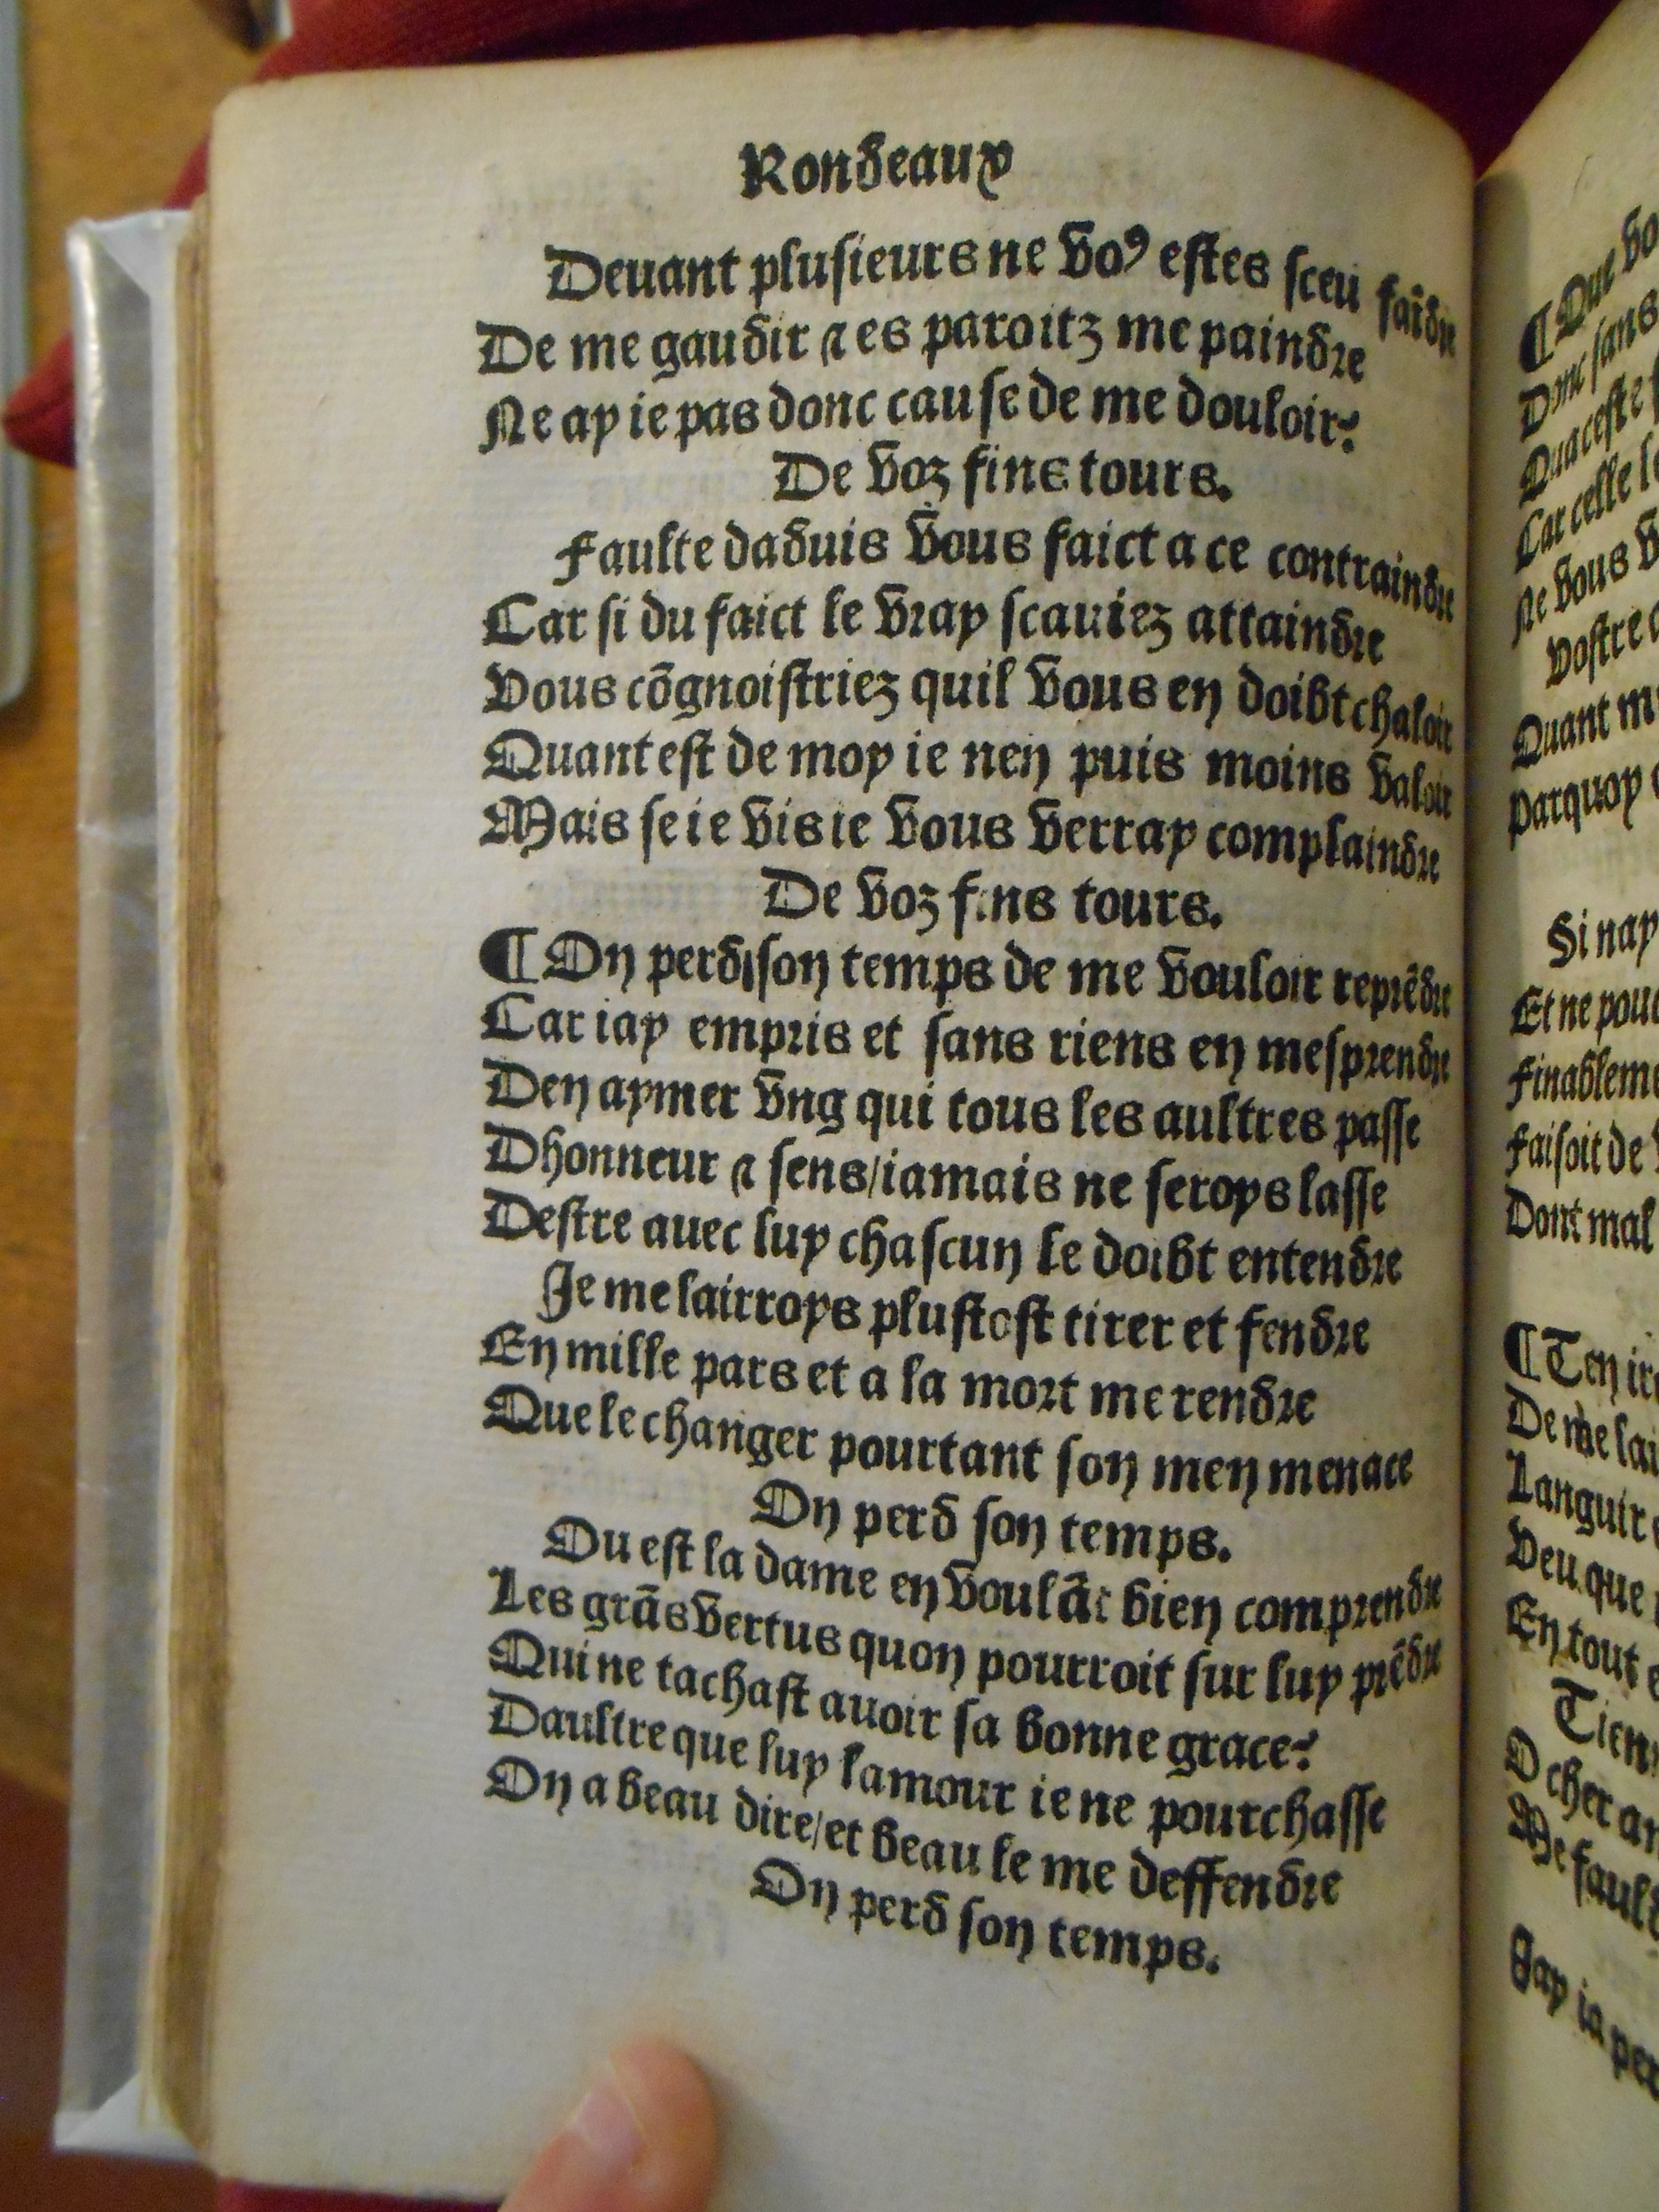 Rondeaux
Deuant plusieurs ne voꝰ estes sceu faĩdre
De me gaudir ⁊ es paroitz me paindre
Ne ay ie pas donc cause de me douloir?
De voz fins tours.
Faulte daduis vous faict a ce contraindre
Car si du faict le vray scauiez attaindre
Vous cõgnoistriez quil vous en doibt chaloir
Quant est de moy ie nen puis moins valoir
Mais se ie vis ie vous verray complaindre
De voz fins tours.
¶ On perd son temps de me vouloir reprẽdre
Car iay empris et sans riens en mesprendre
Den aymer vng qui tous les aultres passe
Dhonneur ⁊ sens/iamais ne seroys lasse
Destre auec luy chascun le doibt entendre
Je me lairroys plustost tirer et fendre
En mille pars et a la mort me rendre
Que le changer pourtant son men menace
On perd son temps.
Ou est la dame en voulãt bien comprendre
Les grãs vertus quon pourroit sur luy prẽdre
Qui ne tachast auoir sa bonne grace?
Daultre que luy lamour ie ne pourchasse
On a beau dire/et beau le me deffendre
On perd son temps.
¶ Que
Donc sans
Qua ceste
Car celle
Ne vous
Vostre
Quant
Parquoy
Si nay
Et ne
Faisoit de
Dont mal
¶ Ten
De me
Languir
Veu que
En tout
O cher
Me fault
Jay ia